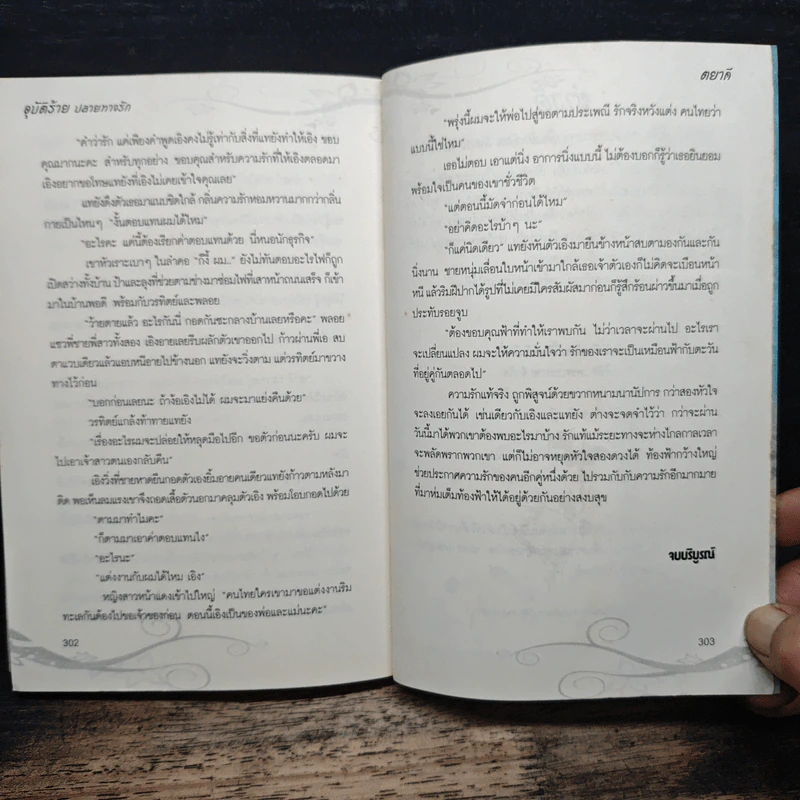 อุบัติร้าย ปลายทางรัก
"คำว่ารัก แค่เพียงคำพูดเอิงคงไม่รู้เท่ากับสิ่งที่แทยังทำให้เอิง ขอบ
คุณมากนะคะ สำหรับทุกอย่าง ขอบคุณสำหรับความรักที่ให้เอิงตลอดมา
เอิงอยากขอโทษแทยังที่เอิงไม่เคยเข้าใจคุณเลย"
แทยังดึงตัวเธอมาแนบชิดใกล้ กลิ่นความรักหอมหวานมากกว่ากลิ่น
กายเป็นไหนๆ "งั้นตอบแทนผมได้ไหม"
"อะไรคะ แค่นี้ต้องเรียกค่าตอบแทนด้วย นี่หนอนักธุรกิจ"
เขาหัวเราะเบาๆ ในลำคอ "ก็งี้ ผม.." ยังไม่ทันตอบอะไรไฟก็ถูก
เปิดสว่างทั้งบ้าน ป้าและลุงที่ช่วยตามช่างมาซ่อมไฟที่เสาหน้าถนนเสร็จ ก็เข้า
มาในบ้านพอดี พร้อมกับวรทิตย์และพลอย
"ว้ายตายแล้ว อะไรกันนี่ กอดกันซะกลางบ้านเลยหรือคะ" พลอย
แซวพี่ชายพี่สาวทั้งสอง เอิงอายเลยรีบผลักตัวเขาออกไป ก้าวผ่านพี่เอ สบ
ตาแวบเดียวแล้วแอบหนีอายไปข้างนอก แทยังจะวิ่งตาม แต่วรทิตย์มาขวาง
ทางไว้ก่อน
"บอกก่อนเลยนะ ถ้าง้อเอิงไม่ได้ ผมจะมาแย่งคืนด้วย"
วรทิตย์แกล้งท้าทายแทยัง
"เรื่องอะไรผมจะปล่อยให้หลุดมือไปอีก ขอตัวก่อนนะครับ ผมจะ
ไปเอาเจ้าสาวตนเองกลับคืน"
เอิงวิ่งที่ชายหาดยืนกอดตัวเองยิ้มอายคนเดียวแทยังก้าวตามหลังมา
ติด พอเห็นลมแรงเขาจึงถอดเสื้อตัวนอกมาคลุมตัวเอิง พร้อมโอบกอดไปด้วย
"ตามมาทำไมคะ"
"ก็ตามมาเอาค่าตอบแทนไง"
"อะไรนะ"
"แต่งงานกับผมได้ไหม เอิง"
หญิงสาวหน้าแดงเข้าไปใหญ่ "คนไทยใครเขามาขอแต่งงานริม
ทะเลกันต้องไปขอเจ้าของก่อน ตอนนี้เอิงเป็นของพ่อและแม่นะคะ"
302
ตยาคี
"พรุ่งนี้ผมจะให้พ่อไปสู่ขอตามประเพณี รักจริงหวังแต่ง คนไทยว่า
แบบนี้ใช่ไหม"
เธอไม่ตอบ เอาแต่นิ่ง อาการนิ่งแบบนี้ ไม่ต้องบอกก็รู้ว่าเธอยินยอม
พร้อมใจเป็นคนของเขาชั่วชีวิต
"แต่ตอนนี้มัดจำก่อนได้ไหม"
"อย่าคิดอะไรบ้าๆ นะ"
"ก็แค่นิดเดียว" แทยังหันตัวเอิงมายืนข้างหน้าสบตามองกันและกัน
นิ่งนาน ชายหนุ่มเลื่อนใบหน้าเข้ามาใกล้เธอเจ้าตัวเองก็ไม่คิดจะเบือนหน้า
หนี แล้วริมฝีปากได้รูปที่ไม่เคยมีใครสัมผัสมาก่อนก็รู้สึกร้อนผ่าวขึ้นมาเมื่อถูก
ประทับรอยจูบ
"ต้องขอบคุณฟ้าที่ทำให้เราพบกัน ไม่ว่าเวลาจะผ่านไป อะไรเรา
จะเปลี่ยนแปลง ผมจะให้ความมั่นใจว่า รักของเราจะเป็นเหมือนฟ้ากับตะวัน
ที่อยู่คู่กันตลอดไป"
ความรักแท้จริง ถูกพิสูจน์ด้วยขวากหนามนานัปการ กว่าสองหัวใจ
จะลงเอยกันได้ เช่นเดียวกับเอิงและแทยัง ต่างจะจดจำไว้ว่า กว่าจะผ่าน
วันนี้มาได้พวกเขาต้องพบอะไรมาบ้าง รักแท้แม้ระยะทางจะห่างไกลกาลเวลา
จะพลัดพรากพวกเขา แต่ก็ไม่อาจหยุดหัวใจสองดวงได้ ท้องฟ้ากว้างใหญ่
ช่วยประกาศความรักของคนอีกคู่หนึ่งด้วย ไปรวมกับกับความรักอีกมากมาย
ที่มาห่มเต็มท้องฟ้าให้ได้อยู่ด้วยกันอย่างสงบสุข
จบบริบูรณ์
303